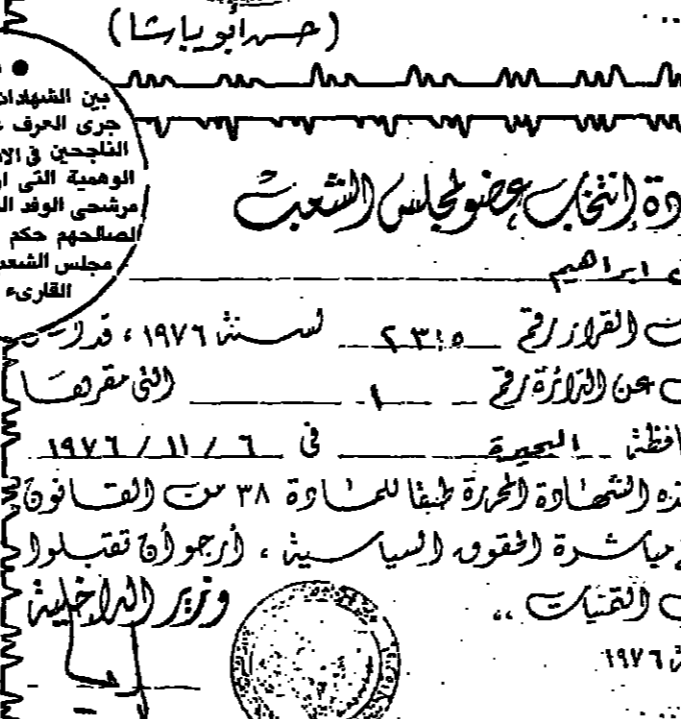 (حسن أبو باشا)
بين الشهادات
جرى العرف
الناجحين في الا
الوهمية التى ا
مرشحى الوفد ال
لصالحهم حكم
مجلس الشعب
القارىء
دة إنتخاب عضو لمجلس الشعب
ابراهيم
القرار رقم ٢٣١٥ لسنة ١٩٧٦ ،
عن الدائرة رقم ١ التى مقرها
افظة البحيرة فى ٦ / ١١ / ١٩٧٦
ذه الشهادة المحررة طبقا للمادة ٣٨ من القانون
مباشرة الحقوق السياسية ، أرجو أن تقبلوا
التمنيات ..
وزير الداخلية
١٩٧٦